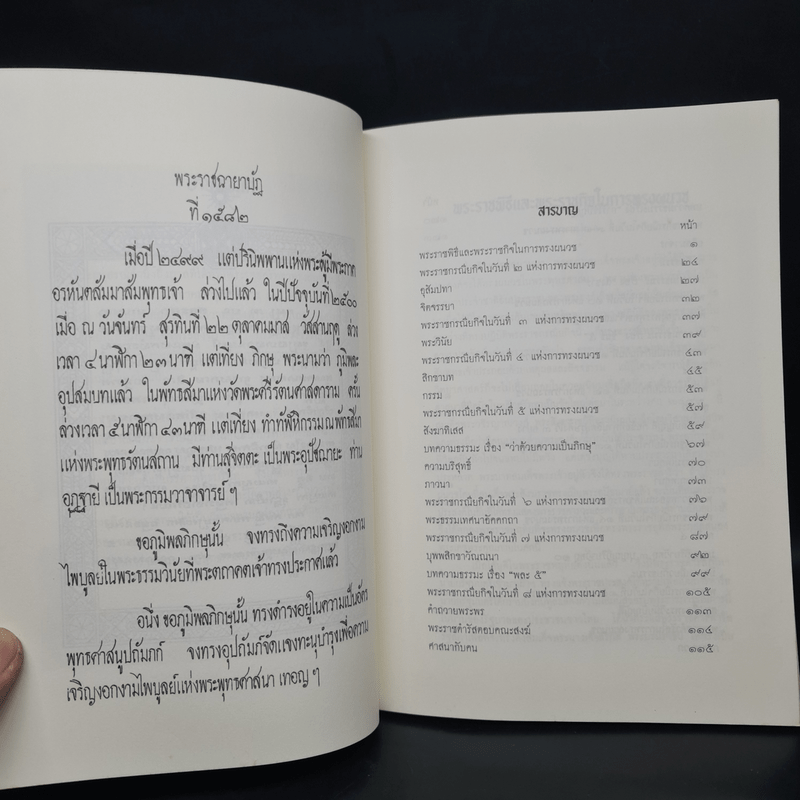 พระราชฉายาบัฏ
ที่ ๑๕๘๒
เมื่อปี ๒๔๙๙ แต่ปรินิพพานแห่งพระผู้มีพระภาค
อรหันตสัมมาสัมพุทธเจ้า ล่วงไปแล้ว ในปีปัจจุบันที่ ๒๕๐๐
เมื่อ ณ วันจันทร์ สุรทินที่ ๒๒ ตุลาคมมาส วัสสานฤดู ล่วง
เวลา ๔ นาฬิกา ๒๓ นาฑี แต่เที่ยง ภิกษุ พระนามว่า ภูมิพละ
อุปสมบทแล้ว ในพัทธสีมาแห่งวัดพระศรีรัตนศาสดาราม ครั้น
ล่วงเวลา ๕ นาฬิกา ๔๓ นาฑี แต่เที่ยง ทำทัฬหิกรรม ณ พัทธสีมา
แห่งพระพุทธรัตนสถาน มีท่านสุจิตตะ เป็นพระอุปัชฌายะ ท่าน
อุฏฐายี เป็นพระกรรมวาจาจารย์ ฯ
ขอภูมิพลภิกษุนั้น จงทรงถึงความเจริญงอกงาม
ไพบูลย์ในพระธรรมวินัยที่พระตถาคตเจ้าทรงประกาศแล้ว
อนึ่ง ขอภูมิพลภิกษุนั้น ทรงดำรงอยู่ในความเป็นอัคร
พุทธศาสนูปถัมภก์ จงทรงอุปถัมภ์จัดแจงทะนุบำรุงเพื่อความ
เจริญงอกงามไพบูลย์แห่งพระพุทธศาสนา เทอญ ฯ
สารบาญ
หน้า
พระราชพิธีและพระราชกิจในการทรงผนวช ๑
พระราชกรณียกิจในวันที่ ๒ แห่งการทรงผนวช ๒๔
อุสัมปทา ๒๗
จิตจรรยา ๓๒
พระราชกรณียกิจในวันที่ ๓ แห่งการทรงผนวช ๓๗
พระวินัย ๓๙
พระราชกรณียกิจในวันที่ ๔ แห่งการทรงผนวช ๔๓
สิกขาบท ๔๕
กรรม ๕๓
พระราชกรณียกิจในวันที่ ๕ แห่งการทรงผนวช ๕๗
สังฆาทิเสส ๕๙
บทความธรรมะ เรื่อง "ว่าด้วยความเป็นภิกษุ" ๖๗
ความบริสุทธิ์ ๗๐
ภาวนา ๗๓
พระราชกรณียกิจในวันที่ ๖ แห่งการทรงผนวช ๗๖
พระธรรมเทศนาอัคคกถา ๗๙
พระราชกรณียกิจในวันที่ ๗ แห่งการทรงผนวช ๘๗
บุพพสิกขาวัณณนา ๙๒
บทความธรรมะ เรื่อง "พละ ๕" ๙๙
พระราชกรณียกิจในวันที่ ๘ แห่งการทรงผนวช ๑๐๕
คำถวายพระพร ๑๑๓
พระราชดำรัสตอบคณะสงฆ์ ๑๑๔
ศาสนากับคน ๑๑๕